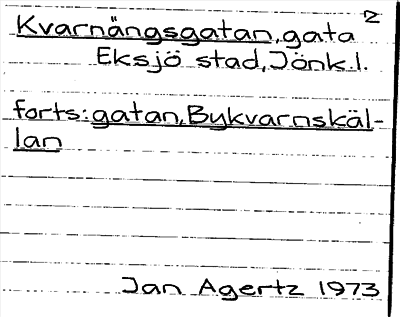 2
Kvarnängsgatan, gata
Eksjö stad, Jönk.l.
forts: gatan, Bykvarnskäl-
lan
Jan Agertz 1973